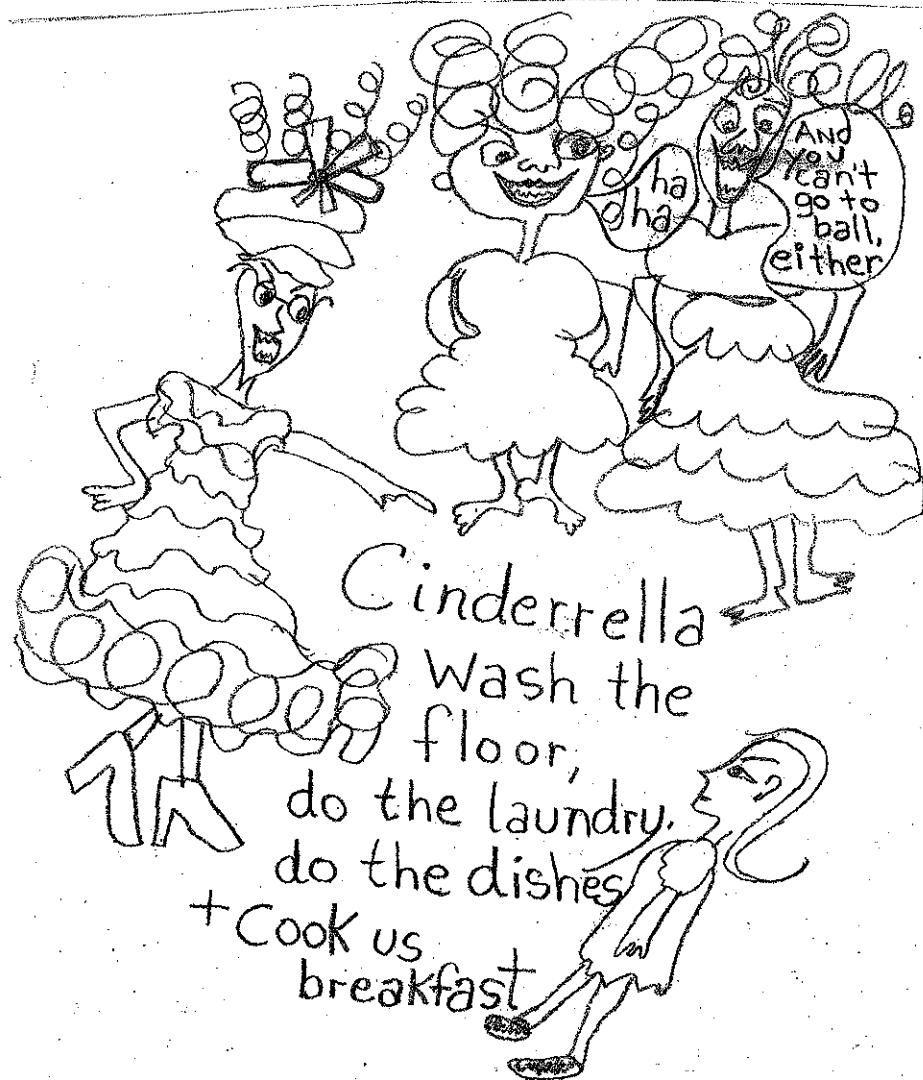 ha
ha
And
you
can't
go to
ball,
either
Cinderrella
Wash the
floor,
do the laundry.
do the dishes
+ Cook us
breakfast